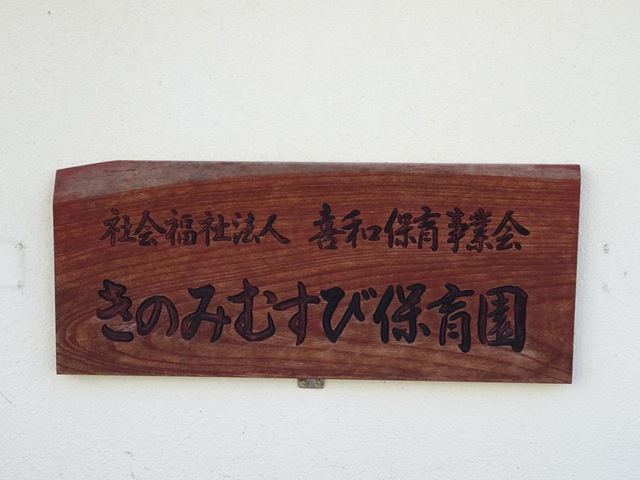 社会福祉法人 喜和保育事業会
きのみむすび保育園